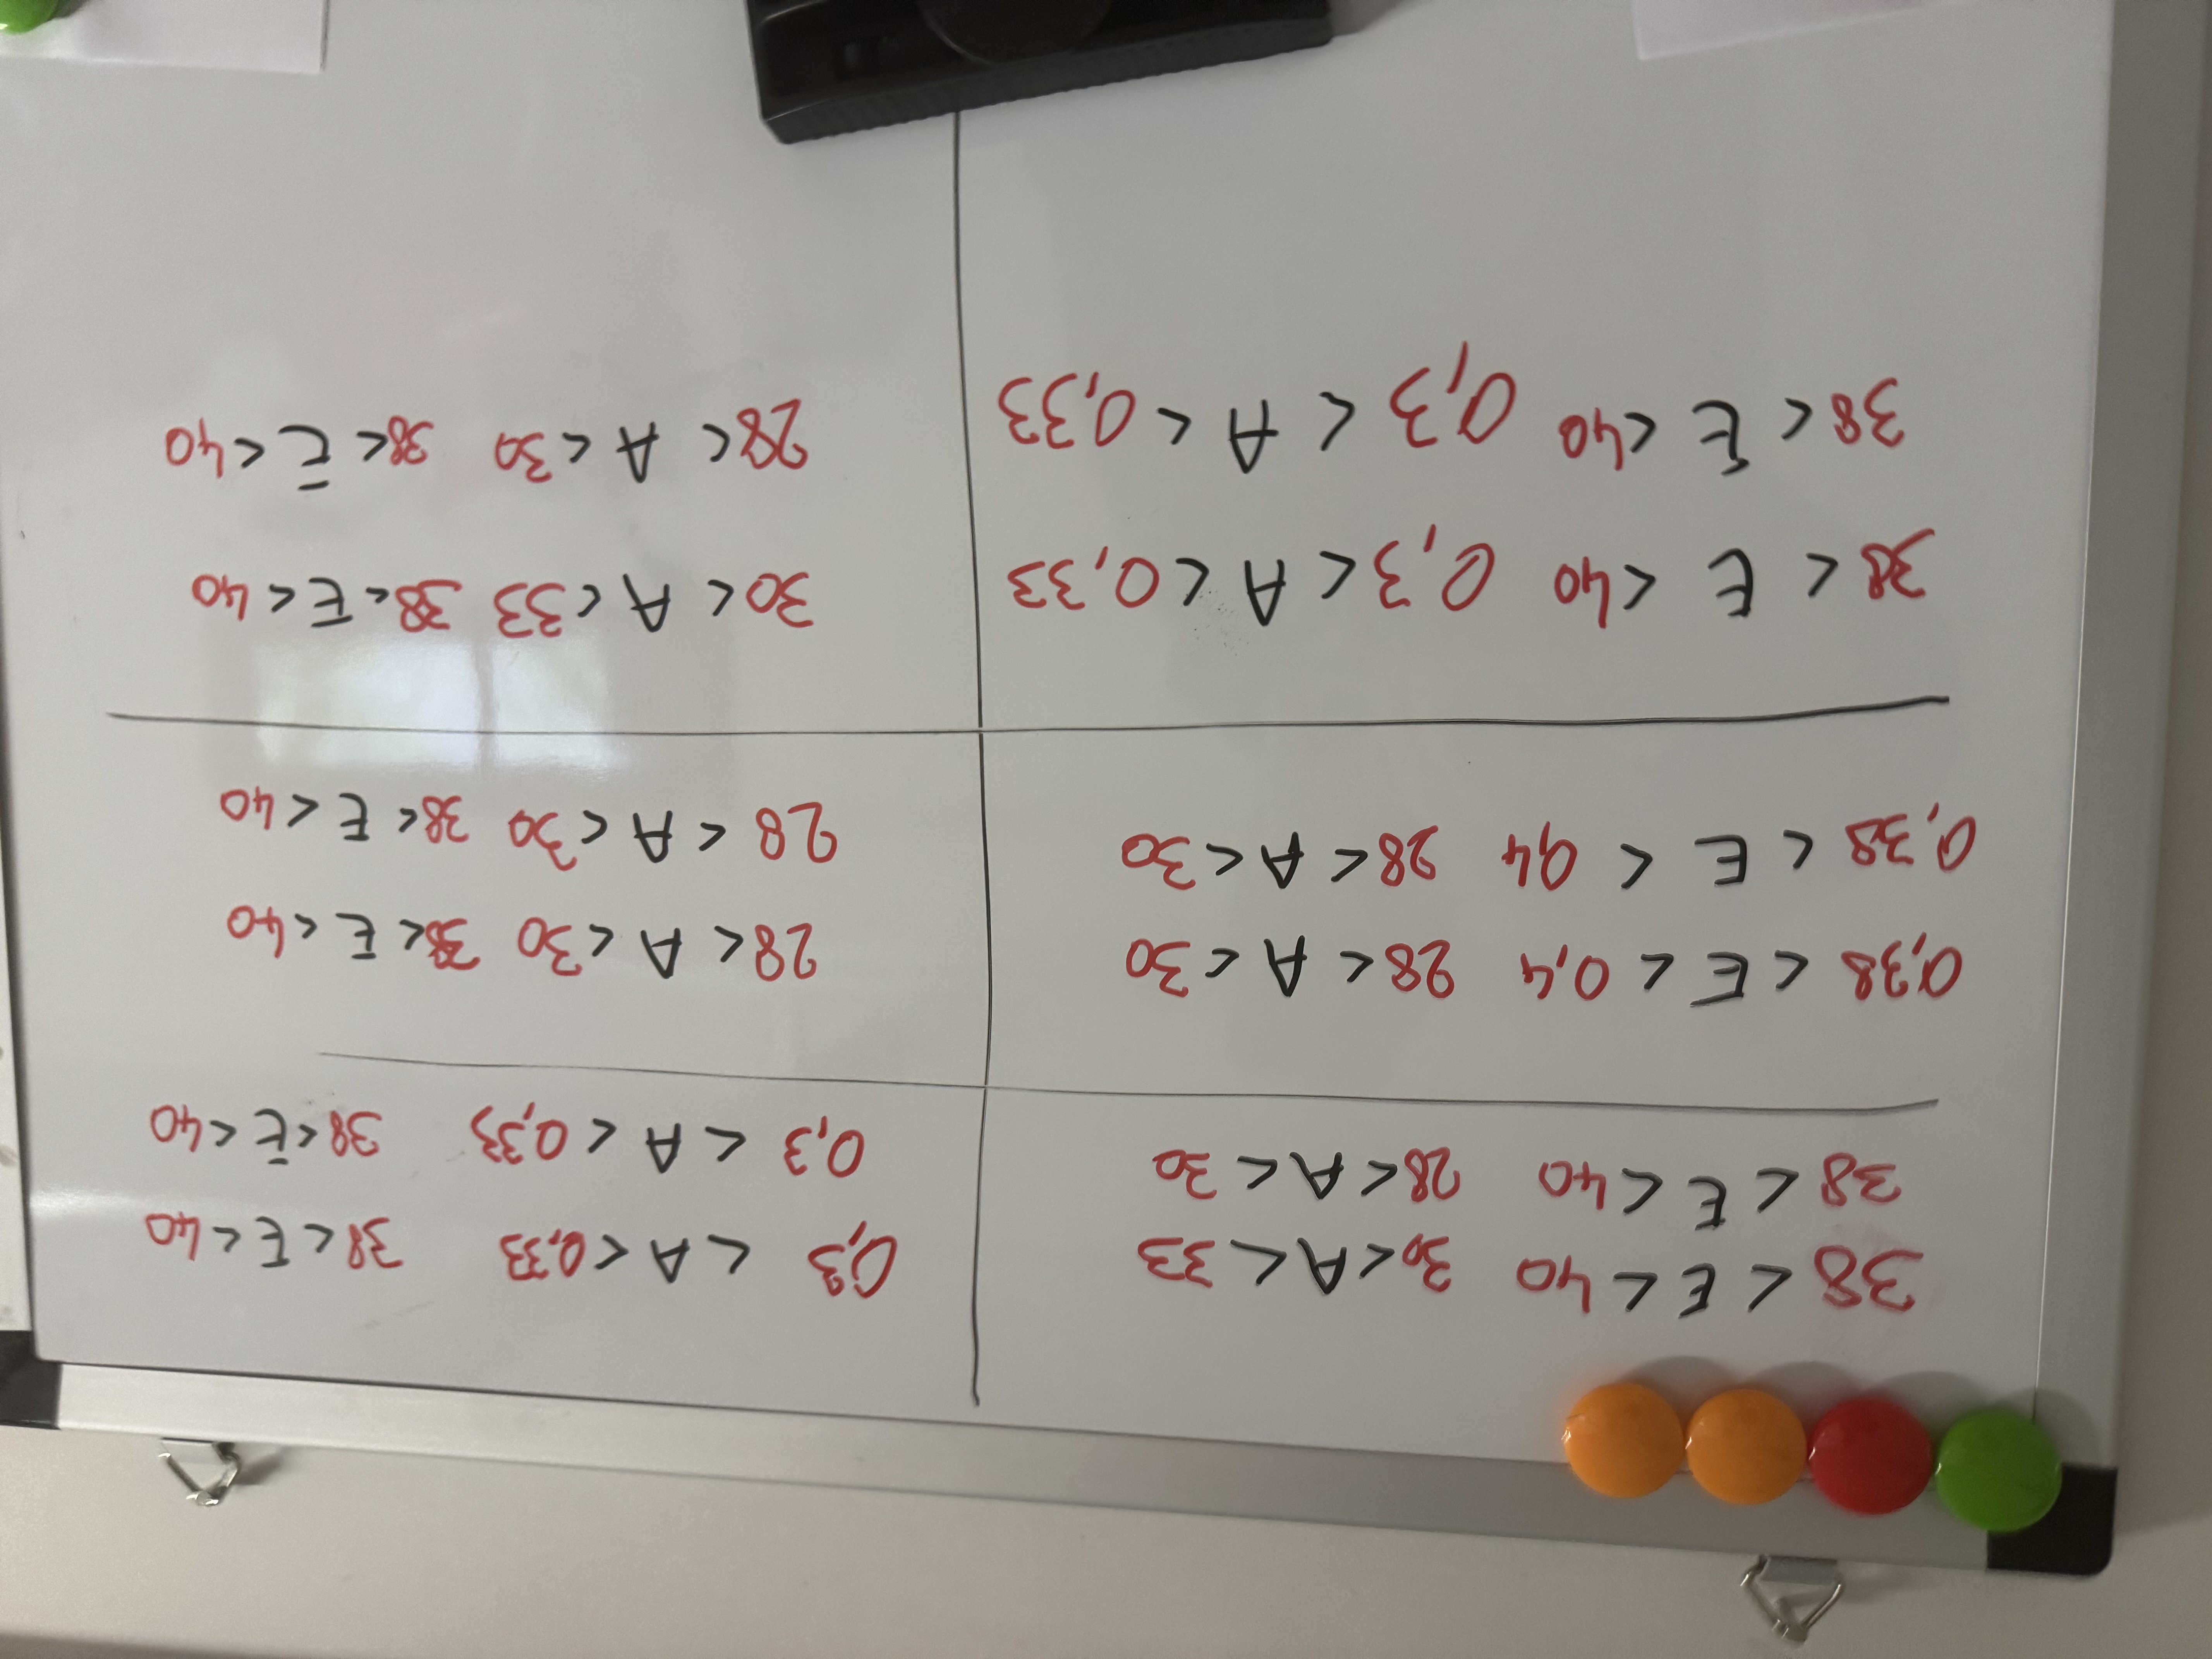 38 < E < 40 30 < A < 33
38 < E < 40 28 < A < 30
0,3 < A < 0,33 38 < E < 40
0,3 < A < 0,33 38 < E < 40
0,38 < E < 0,4 28 < A < 30
0,38 < E < 0,4 28 < A < 30
28 < A < 30 38 < E < 40
28 < A < 30 38 < E < 40
38 < E < 40 0,3 < A < 0,33
38 < E < 40 0,3 < A < 0,33
30 < A < 33 38 < E < 40
28 < A < 30 38 < E < 40